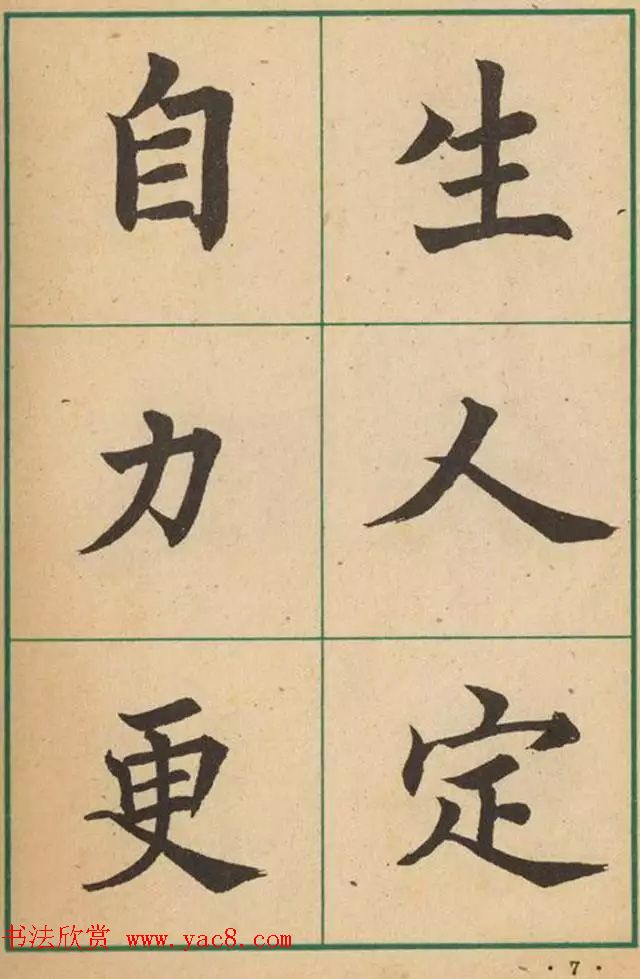 生人定
自力更
书法欣赏 www.yac8.com
· 7 ·